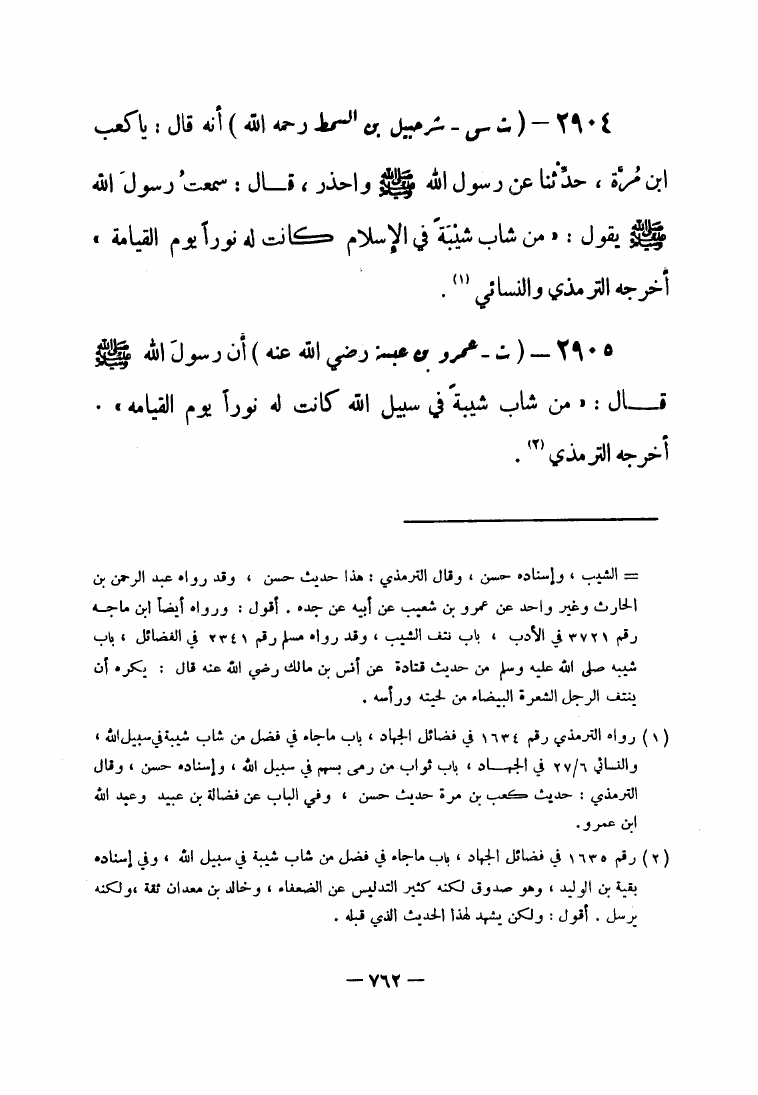 ٢٩٠٤ – ( ت س - شرحبيل بن السمط رحمه الله ) أنه قال : ياكعب
ابن مُرَّة ، حدِّثنا عن رسول الله ﷺ واحذر ، قــال : سمعت رسولَ الله
ﷺ يقول : « من شاب شَيْبَةً في الإسلام كانت له نوراً يوم القيامة »
أخرجه الترمذي والنسائي (١) .
٢٩٠٥ – ( ت - عمرو بن عبسة رضي الله عنه ) أن رسولَ الله ﷺ
قــال : « من شاب شيبةً في سبيل الله كانت له نوراً يوم القيامه » .
أخرجه الترمذي (٢) .
= الشيب ، وإسناده حسن ، وقال الترمذي : هذا حديث حسن ، وقد رواه عبد الرحمن بن
الحارث وغير واحد عن عمرو بن شعيب عن أبيه عن جده . أقول : ورواه أيضاً ابن ماجــه
رقم ٣٧٢١ في الأدب ، باب نتف الشيب ، وقد رواه مسلم رقم ٢٣٤١ في الفضائل ، باب
شيبه صلى الله عليه وسلم من حديث قتادة عن أنس بن مالك رضي الله عنه قال : يكره أن
ينتف الرجل الشعرة البيضاء من لحيته ورأسه .
(١) رواه الترمذي رقم ١٦٣٤ في فضائل الجهاد ، باب ماجاء في فضل من شاب شيبة في سبيل الله ،
والنسائي ٢٧/٦ في الجهــاد ، باب ثواب من رمى بسهم في سبيل الله ، وإسناده حسن ، وقال
الترمذي : حديث كعب بن مرة حديث حسن ، وفي الباب عن فضالة بن عبيد وعبد الله
ابن عمرو .
(٢) رقم ١٦٣٥ في فضائل الجهاد ، باب ماجاء في فضل من شاب شيبة في سبيل الله ، وفي إسناده
بقية بن الوليد ، وهو صدوق لكنه كثير التدليس عن الضعفاء ، وخالد بن معدان ثقة ،ولكنه
يرسل . أقول : ولكن يشهد لهذا الحديث الذي قبله .
– ٧٦٢ –